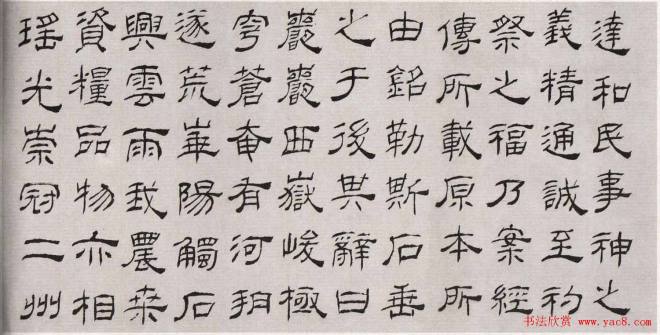 達和民事神之
義精通誠至礿
祭之福乃案經
傳所載原本所
由銘勒斯石垂
之于後其辭曰
巖巖西嶽峻極
穹蒼奄有河朔
遂荒崋陽觸石
興雲雨我農桑
資糧品物亦相
瑤光崇冠二州
书法欣赏 www.yac8.com